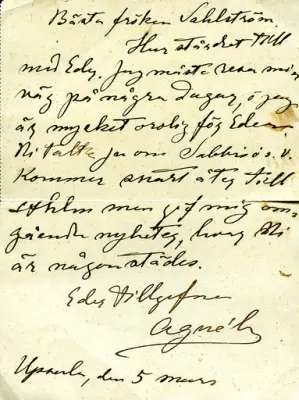 Bästa fröken Sahlström.
Hur står det till
med Eder. Jag måste resa min
väg på några dagar, o jag
är mycket orolig för Eder.
Ni talte ju om
Kommer snart åter till
Sthlm men gif mig om-
gående nyheter, hvar Ni
är någonstädes.
Eder tillgifne
Aguéli
Upsala, den 5 mars